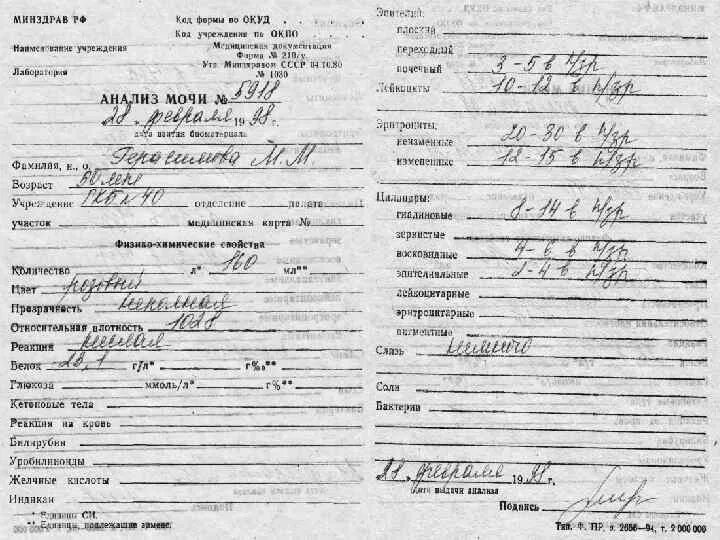 МИНЗДРАВ РФ
Код формы по ОКУД
Код учреждения по ОКПО
Наименование учреждения
Медицинская документация
Форма № 210/у
Утв. Минздравом СССР 04.10.80
№ 1030
Лаборатория
АНАЛИЗ МОЧИ № 5918
28 . февраля 1998 г.
дата взятия биоматериала
Фамилия, и., о. Герасимова М. М.
Возраст 50 лет
Учреждение ГКБ № 40 отделение палата
участок медицинская карта №
Физико-химические свойства
Количество л* 160 мл**
Цвет розовый
Прозрачность неполная
Относительная плотность 1028
Реакция кислая
Белок 23,1 г/л* г‰**
Глюкоза ммоль/л* г%**
Кетоновые тела
Реакция на кровь
Билирубин
Уробилиноиды
Желчные кислоты
Индикан
* Единицы СИ.
** Единицы, подлежащие замене.
Эпителий:
плоский
переходный
почечный 3-5 в п/зр
Лейкоциты 10-12 в п/зр
Эритроциты:
неизменные 20-30 в п/зр
измененные 12-15 в п/зр
Цилиндры:
гиалиновые 8-14 в п/зр
зернистые
восковидные 4-6 в п/зр
эпителиальные 2-4 в п/зр
лейкоцитарные
эритроцитарные
пигментные
Слизь немного
Соли
Бактерии
28 . февраля 1998 г.
дата выдачи анализа
Подпись
Тип. Ф. ПР, з. 2656—94, т. 2 000 000